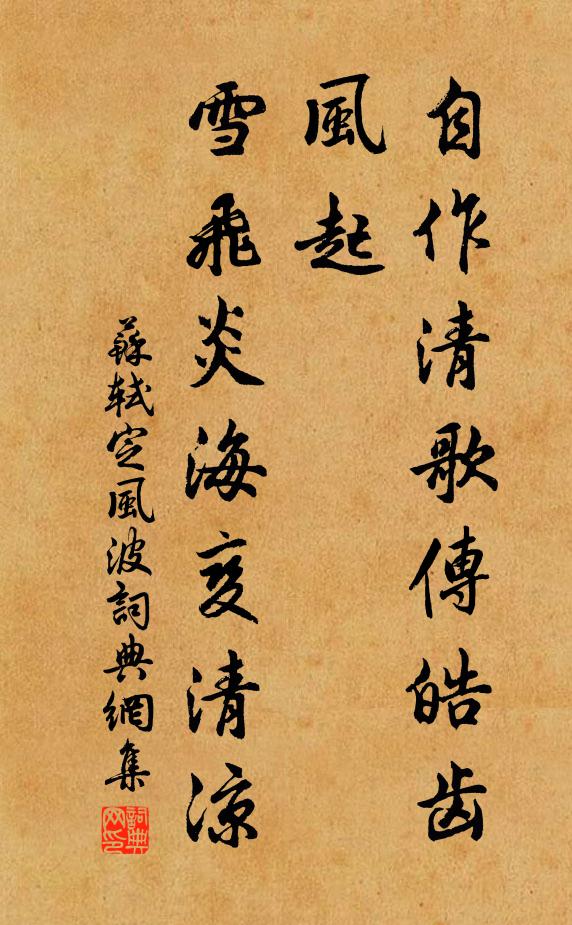 自作清歌傳皓齒
風起
雪飛炎海变清凉
蘇軾定風波詞典網集
詞典网印